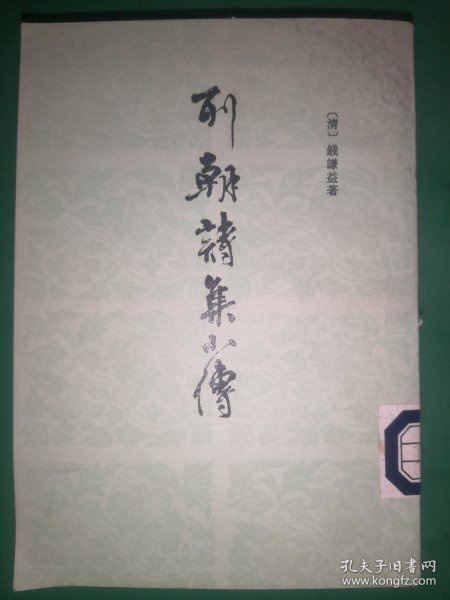 〔清〕錢謙益著
列朝詩集小傳
孔夫子旧书网
www.kongfz.com